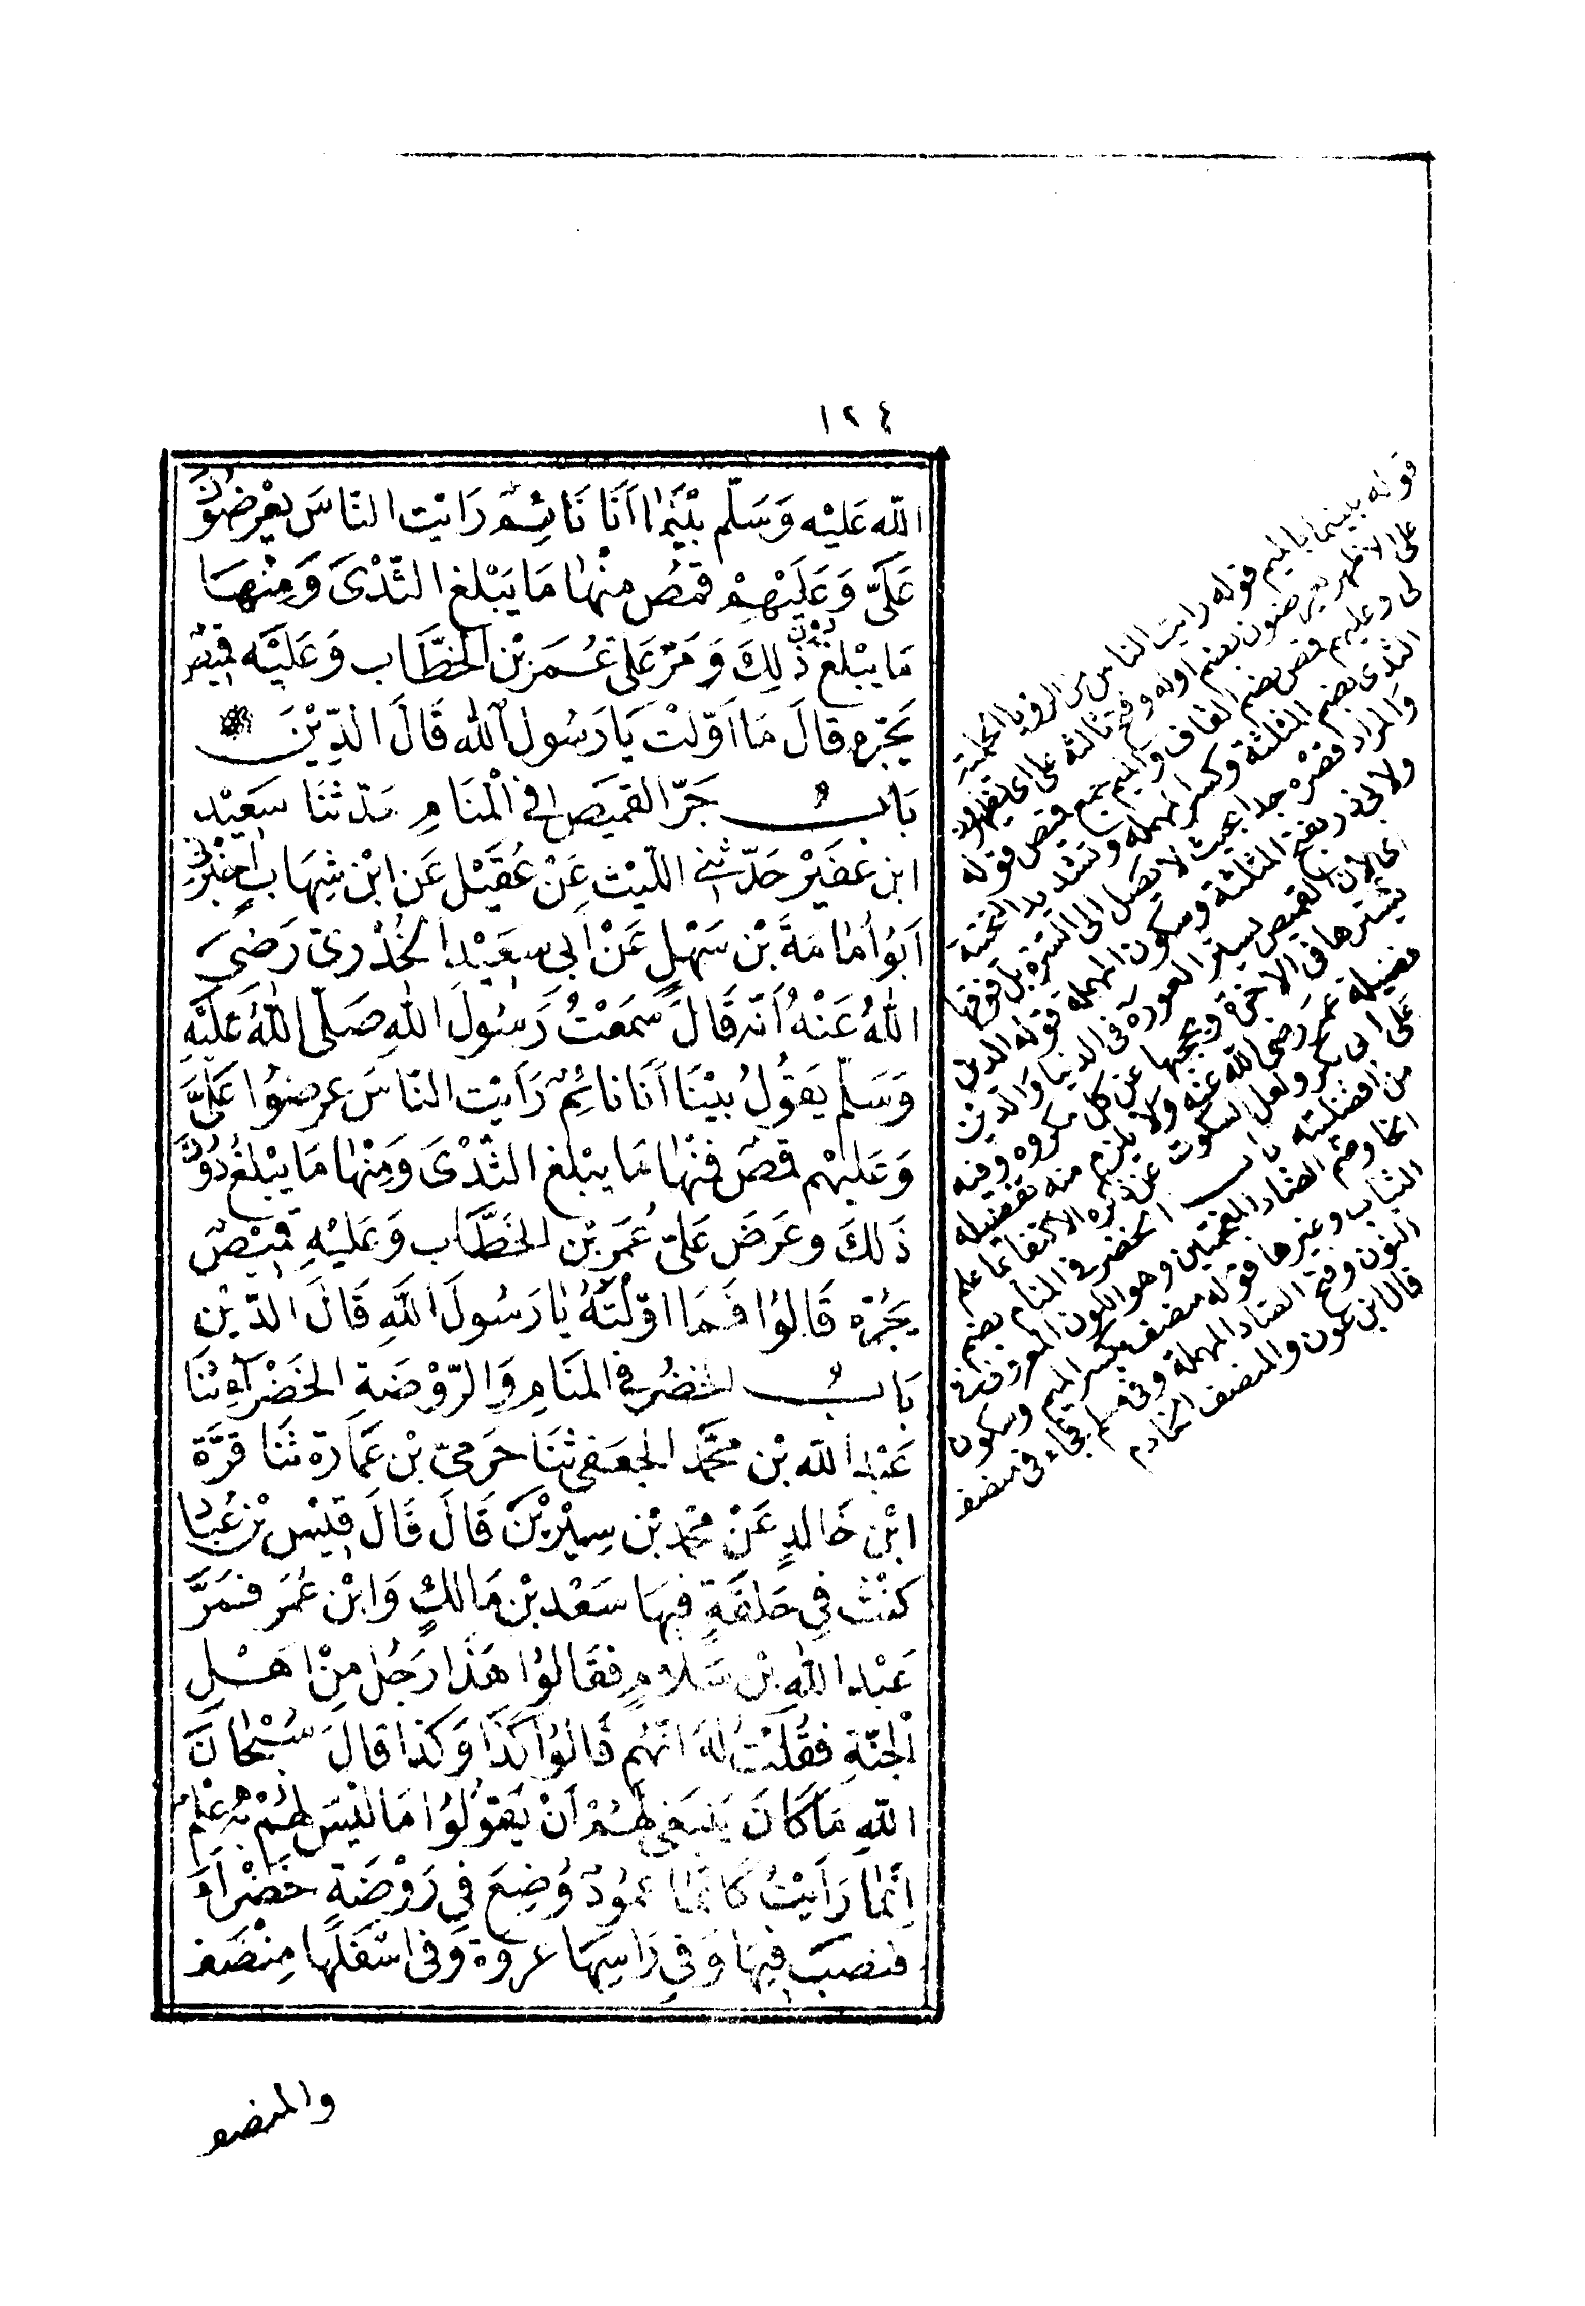 ١٢٤
الله عَلَيْه وَسَلّم بَيْنَمٰا اَنَا نَائِمٌ رَايْت النّاسَ يعْرضُوْنَ
عَلَىَّ وَعَلَيْهِمْ قمُصٌ مِنْهٰا مَا يَبْلغ الثّدْىَ وَمِنْهَا
مَا يبْلغُ دُوْنَ ذٰلِكَ وَمَرّ عَلىَّ عُمَر بْن الخطَّاب وَعَليْه قمِيْصٌ
يَجُرّه قالَ مَا اَوّلتْ يَا رَسُول الله قَالَ الدِّيْنَ
بَابُ جَرّ القمِيَص في الْمنَامِ حَدّثنَا سَعِيْد
ابن عفَيْر حَدّثنِي اللّيْث عَنْ عُقَيْل عَن ابْن شِهَابٍ اَخْبَرَنِي
اَبُو اُمٰامَةَ بْن سَهْلٍ عَنْ اَبِي سعِيْد الخُدْرِيّ رَضِيَ
اللهُ عَنْهُ اَنّه قَالَ سَمعْتُ رَسُولَ اللهِ صَلّى اللهُ عَلَيْهِ
وَسَلّم يَقوُلُ بيْنَا اَنَا نائمٌ رَاَيْت النّاسَ عرضوُا عَلَىَّ
وَعَليْهم قمصٌ فمِنْهٰا مَا يبْلغ الثّدْىَ وَمِنْهٰا مَا يبْلغُ دُوْنَ
ذَلكَ وعَرَضَ عَلىّ عُمَر بْن الخَطَّاب وَعَليْهِ قمِيْصٌ
يَجُرّه قَالوُا فَمَا اوّلْتَهُ يٰا رَسُولَ اللهِ قَالَ الدّيْن
بَابُ الخضَر في المَنَامِ وَالرّوْضَةِ الخَضْرَاءِ ثنَا
عَبْد الله بْن مُحَمَّد الجعَفى ثنَا حَرَمىّ بْن عَمَارَة ثنَا قرّة
ابْن خَالدٍ عَنْ محمّد بْن سِيْرِيْنَ قَالَ قَالَ قيْس بْن عُبَاد
كنْتُ فِي حَلقةٍ فِيهَا سَعْد بْن مَالكٍ وَابْن عُمَرَ فمَرَّ
عَبْد اللهِ بْن سَلامٍ فقَالوُا هَذَا رَجُل مِنْ اهْلِ
الْجَنّةِ فقُلْتُ لهُ انّهُم قَالوُا كَذَا وَكذَا قالَ سُبْحَانَ
اللهِ مَا كَانَ يَنبَغى لهُمْ اَنْ يَقوُلوُا مَا ليْسَ لهُمْ بِهِ عِلْم
اِنّمٰا رَاَيْتُ كَانمّا عموُدٌ وُضِعَ فِي رَوْضَةٍ خَضْرَاءَ
فنصبَ فِيهَا وَفِي رَاسِهَا عروةٌ وَفى اسْفَلهَا مِنْصَف
والمنصف
قوله بينما بالميم قوله رايت الناس من الرويا الحلمية
على الاظهر يعرضون بضم اوله وفتح ثالثه على اى يظهرون
لى وعليهم قمص بضم القاف والميم جمع قميص قوله
الثدى بضم المثلثة وكسر المهملة وتشديد التحتية
والمراد قصره جدا بحيث لا يصل الى السرة بل فوقها
ولابى ذر بفتح المثلثة وسكون المهملة قوله الدين
اى لان القميص يستر العورة فى الدنيا والدين
يسترها فى الاخرة ويحجبها عن كل مكروه وفيه
فضيلة عمر رضى الله عنه ولا يلزم منه تفضيله
على ابى بكر ولعل السكوت عن ذكره الاكتفا بما علم
من افضليته باب الخضر فى المنام بضم
الخا وضم الضاد المعجمتين وهو اللون المعروف فى
الثياب وغيرها قوله منصف بكسر الميم وسكون
النون وفتح الصاد المهملة وفى مسلم فجاء فى منصف
قال ابن عون والمنصف الخادم